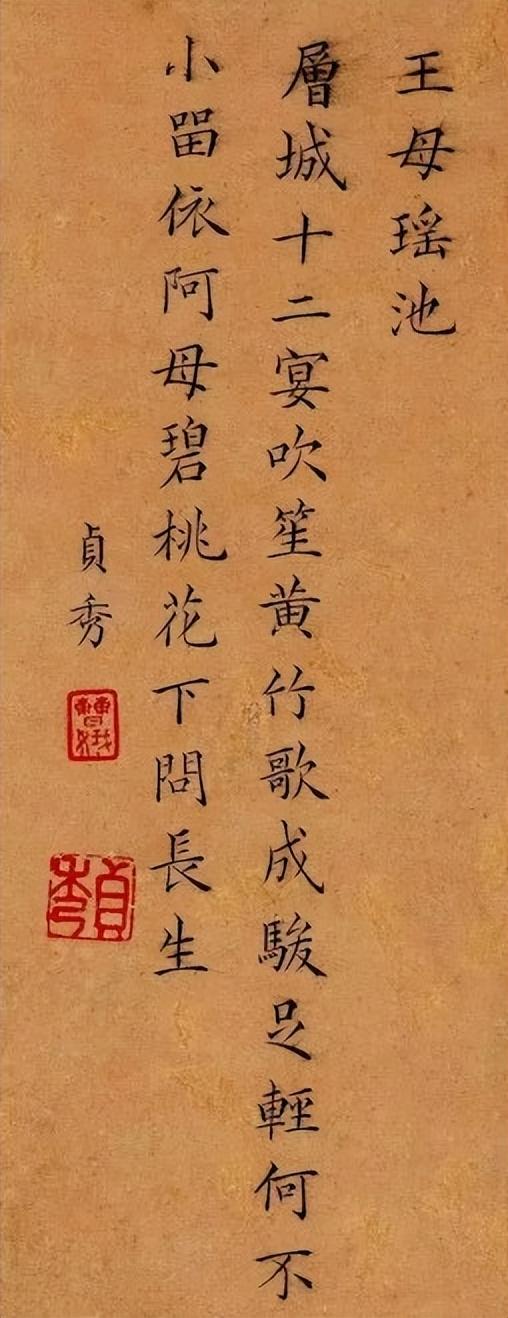 王母瑶池
層城十二宴吹笙黄竹歌成駿足輕何不
小畱依阿母碧桃花下問長生
貞秀
貞秀